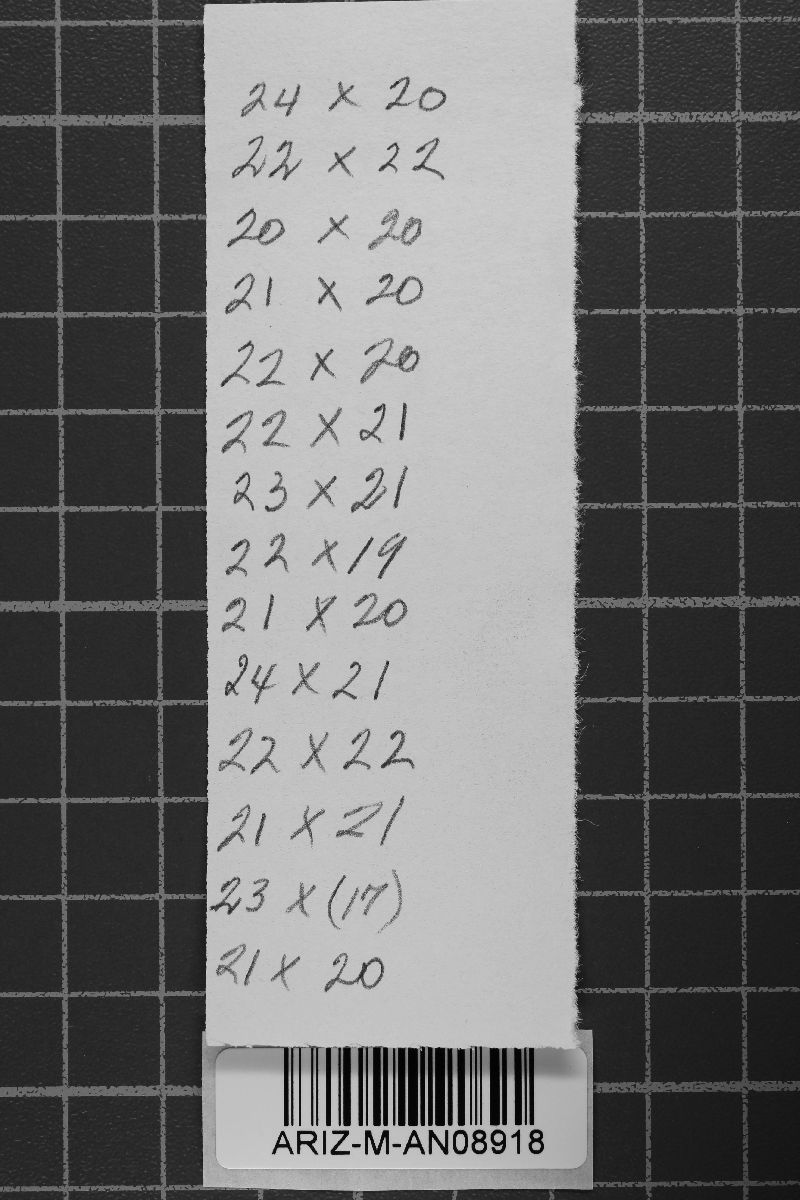 24 x 20
22 x 22
20 x 20
21 x 20
22 x 20
22 x 21
23 x 21
22 x 19
21 x 20
24 x 21
22 x 22
21 x 21
23 x (17)
21 x 20
ARIZ-M-AN08918